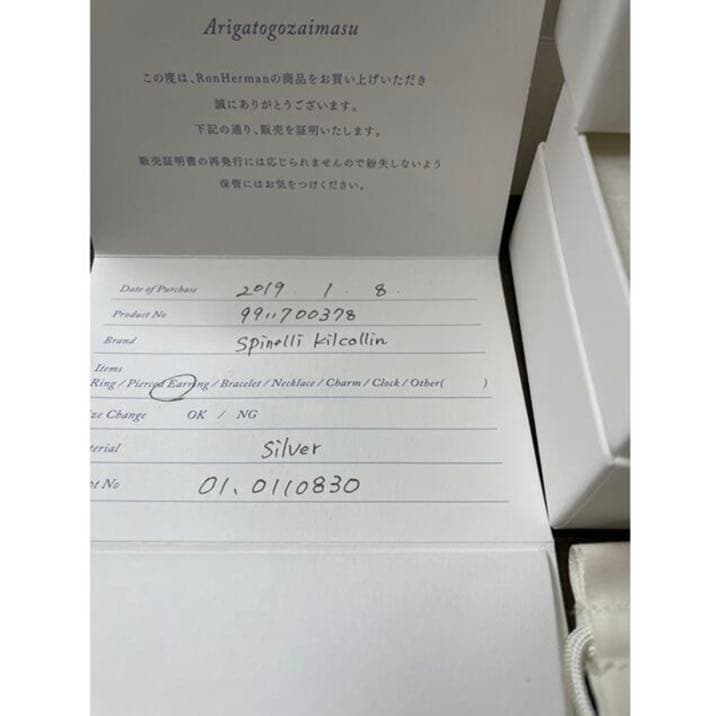 Arigatogozaimasu
この度は、RonHermanの商品をお買い上げいただき
誠にありがとうございます。
下記の通り、販売を証明いたします。
販売証明書の再発行には応じられませんので紛失しないよう
保管にはお気をつけください。
Date of Purchase 2019. 1. 8.
Product No 9911700378
Brand Spinelli Kilcollin
Items
Ring / Pierced Earring / Bracelet / Necklace / Charm / Clock / Other( )
ze Change OK / NG
terial Silver
t No 01. 0110830